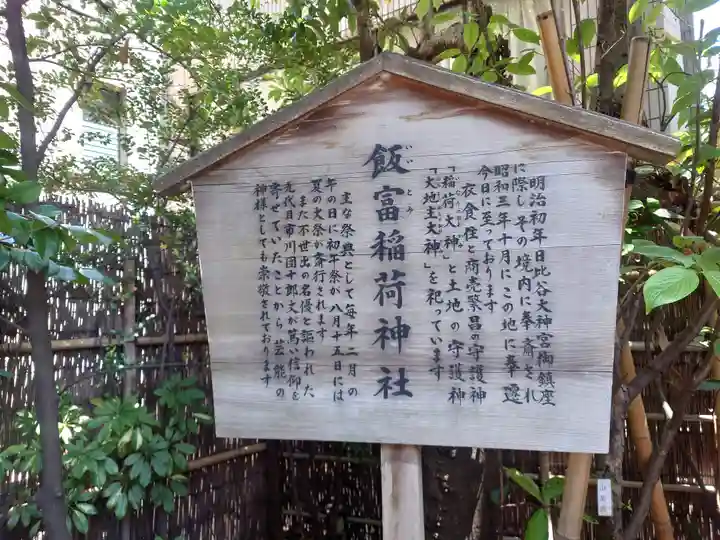 明治初年日比谷大神宮御鎮座
に際しその境内に奉斎され
昭和三年十月にこの地に奉遷
今日に至っております
衣食住と商売繁昌の守護神
「稲荷大神」と土地の守護神
「大地主大神」を祀っています
飯富稲荷神社
いいとみ
主な祭典として毎年二月の
午の日に初午祭が八月十五日には
夏の大祭が斉行されます
また不世出の名優と謳われた
九代目市川団十郎丈が篤い信仰を
寄せていたことから芸能の
神様としても崇敬されております